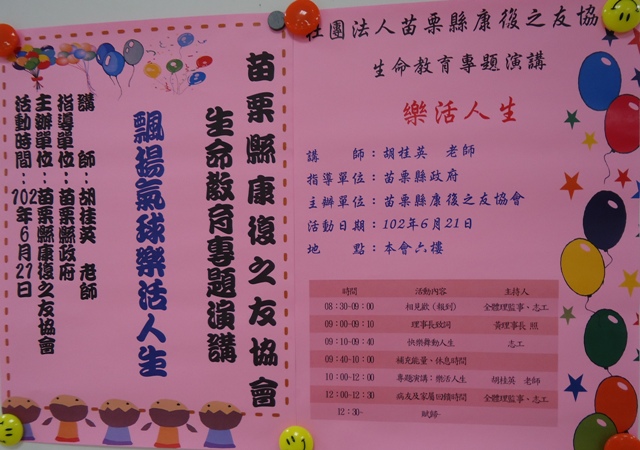 苗栗縣康復之友協會
生命教育專題演講
飄揚氣球樂活人生
講　師：胡桂英　老師
指導單位：苗栗縣政府
主辦單位：苗栗縣康復之友協會
活動時間：102年6月21日
社團法人苗栗縣康復之友協
生命教育專題演講
樂活人生
講　　師：胡桂英　老師
指導單位：苗栗縣政府
主辦單位：苗栗縣康復之友協會
活動日期：102年6月21日
地　　點：本會六樓
時間　活動內容　主持人
08：30-09：00　相見歡（報到）　全體理監事、志工
09：00-09：10　理事長致詞　黃理事長 照
09：10-09：40　快樂舞動人生　志工
09：40-10：00　補充能量、休息時間
10：00-12：00　專題演講：樂活人生　胡桂英　老師
12：00-12：30　病友及家屬回饋時間　全體理監事、志工
12：30-　賦歸